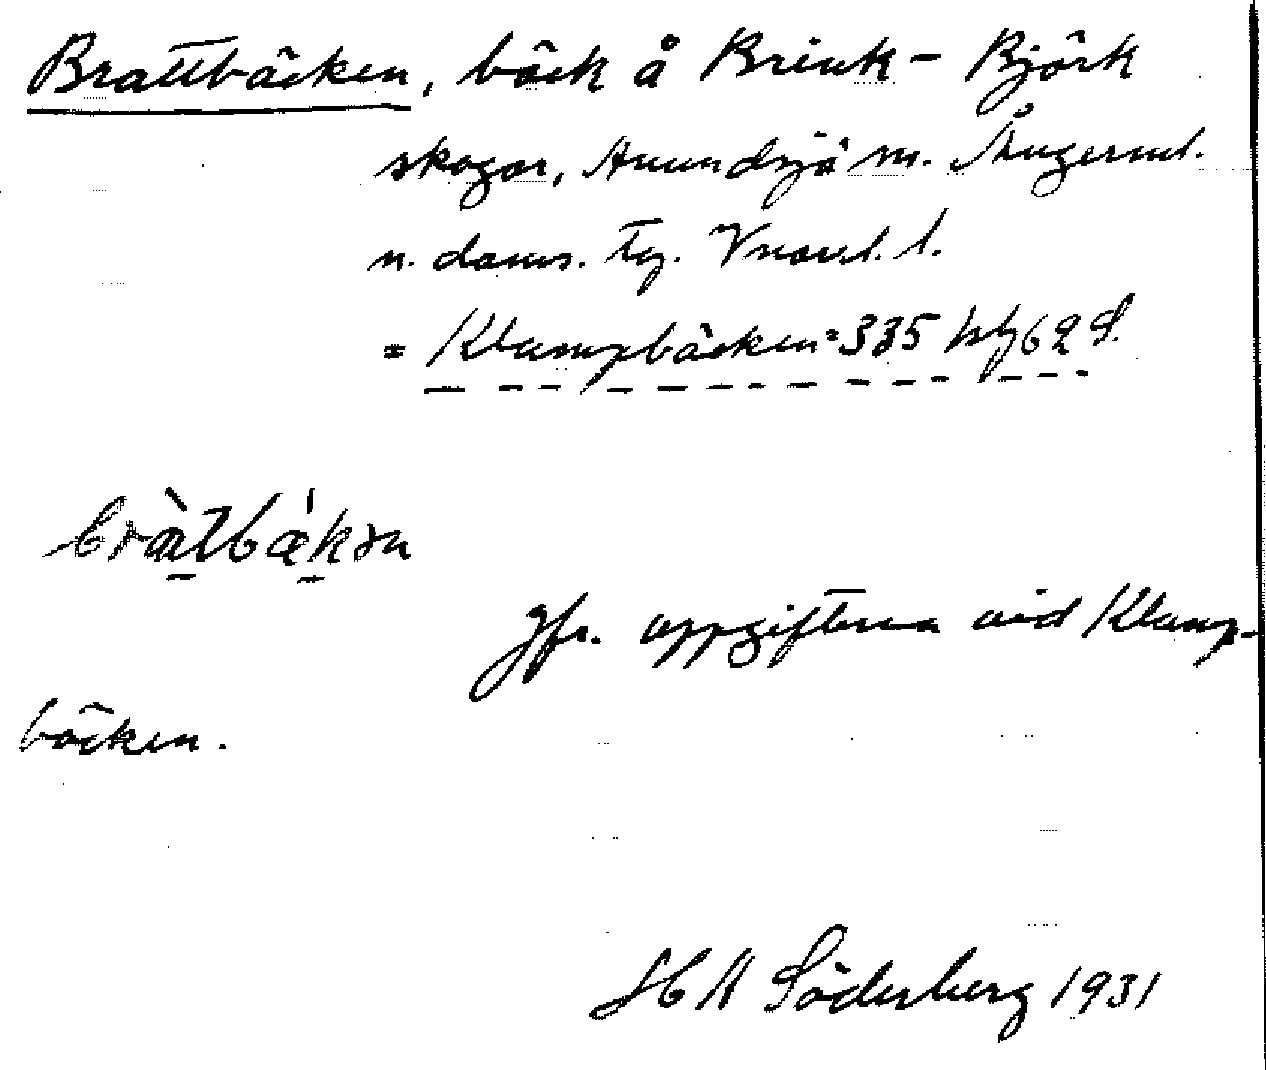 Brattbäcken, bäck å Brink- Björk
skogar, Anundsjö sn. Ångerml.
n. doms. tg. Vnorrl. l.
= Klumpbäcken = 335
jfr. uppgifterna vid Klump-
bäcken.
H A Söderberg 1931